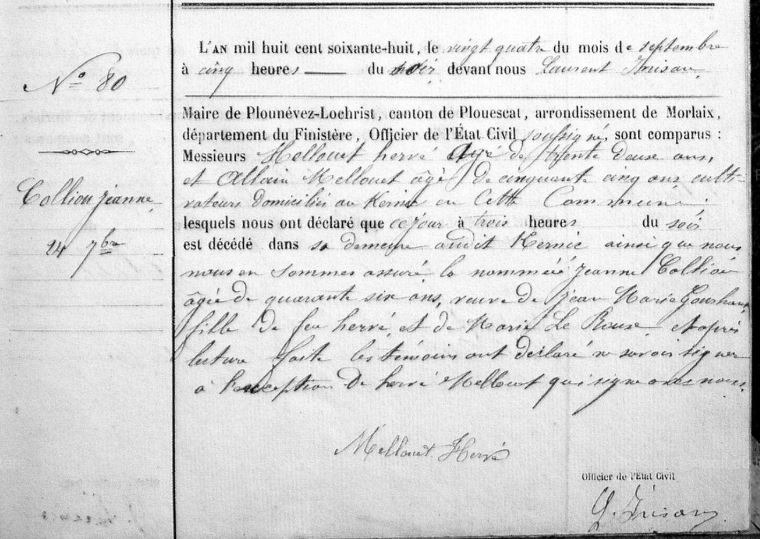 N° 80
Colliou jeanne
24 7bre
L'AN mil huit cent soixante-huit, le vingt quatre du mois de septembre
à cinq heures du soir devant nous Laurent Inisan
Maire de Plounévez-Lochrist, canton de Plouescat, arrondissement de Morlaix,
département du Finistère, Officier de l'État Civil soussigné, sont comparus :
Messieurs Mellouet hervé agé de trente deux ans,
et Allain Mellouet âgé de cinquante cinq ans culti-
vateurs domiciliés au Kernic en Cette Commune;
lesquels nous ont déclaré que ce jour à trois heures du soir
est décédé dans sa demeure audit Kernic ainsi que nous
nous en sommes assuré la nommée jeanne Colliou
âgée de quarante six ans, veuve de jean Marie
fille de feu hervé, et de Marie Le Rouse et après
lecture faite les témoins ont déclaré ne savoir signer
à l'exception de hervé Mellouet qui signe avec nous.
Mellouet Hervé
Officier de l'État Civil
L. Inisan